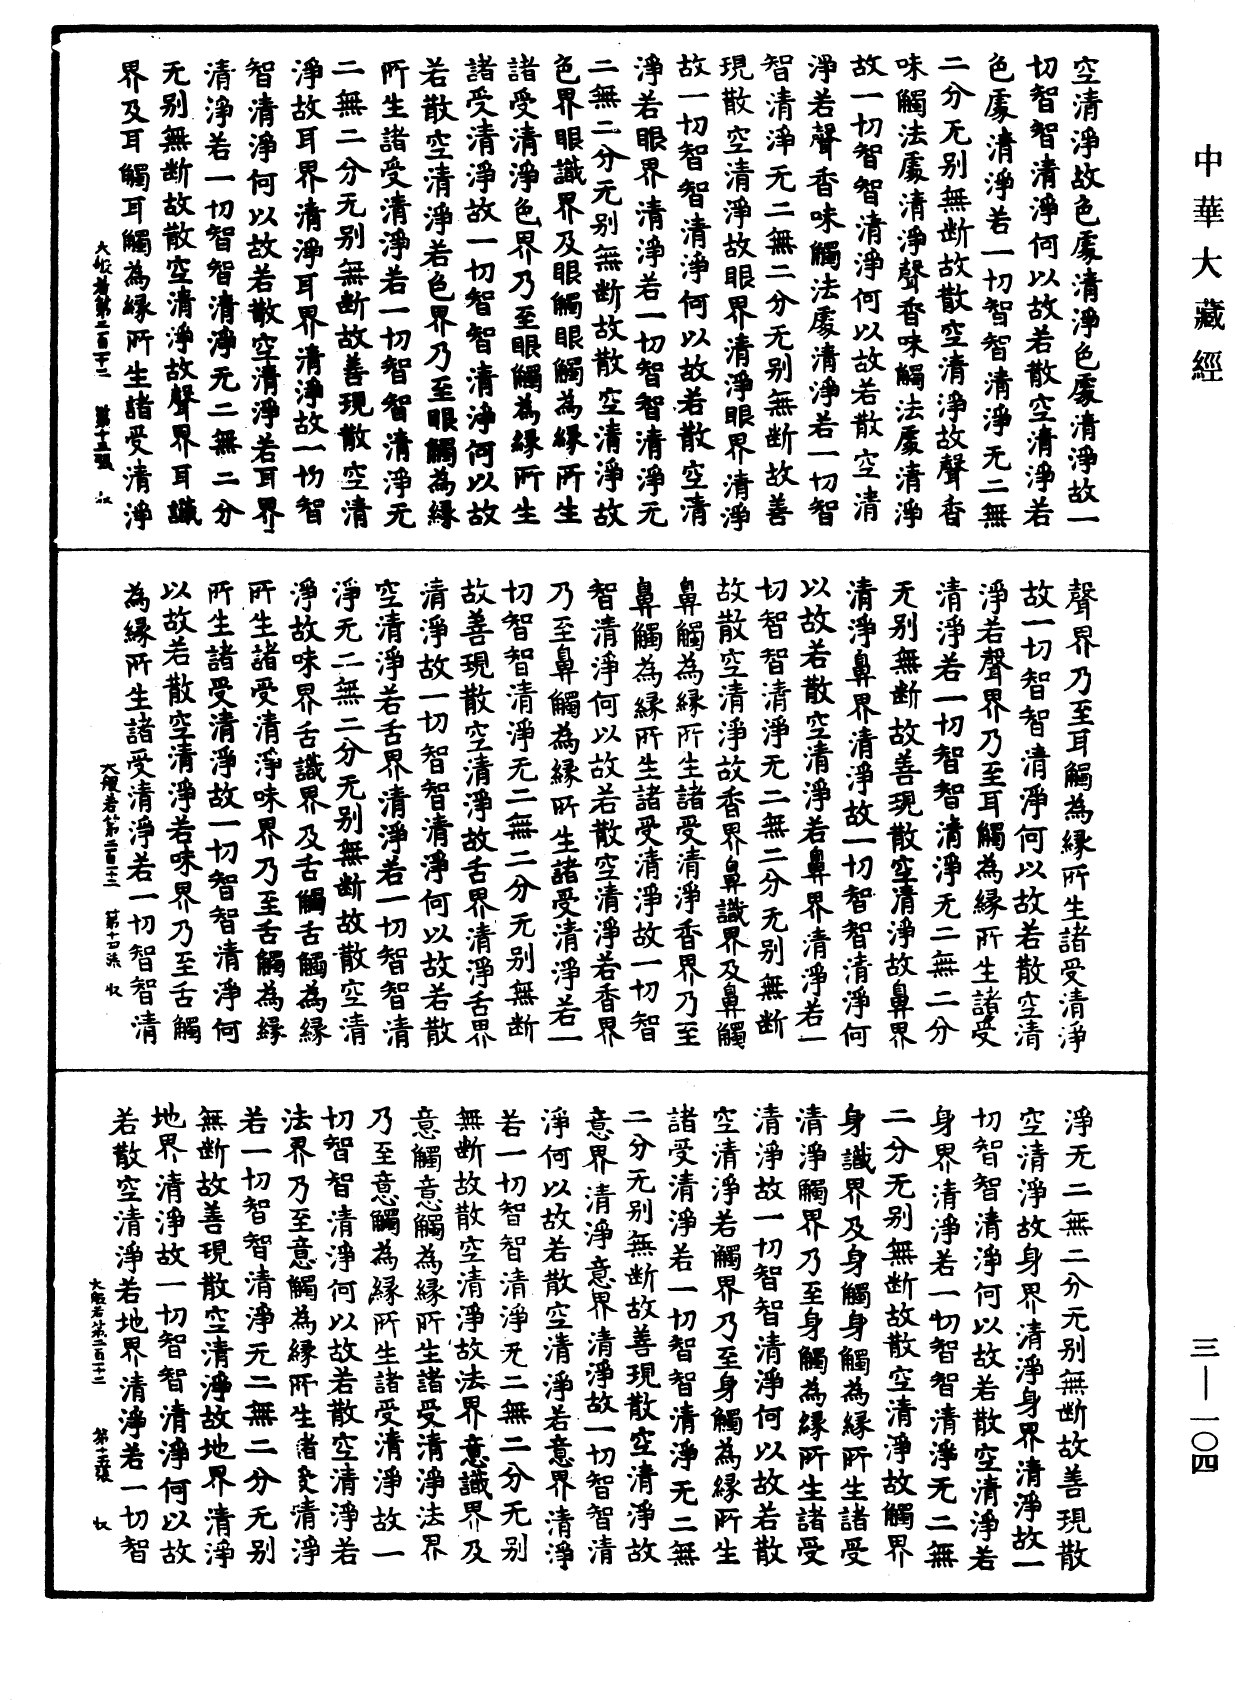 中華大藏經
空清淨故色處清淨色處清淨故一
切智智清淨何以故若散空清淨若
色處清淨若一切智智清淨无二無
二分无别無断故散空清淨故聲香
味觸法處清淨聲香味觸法處清淨
故一切智智清淨何以故若散空清
淨若聲香味觸法處清淨若一切智
智清淨无二無二分无别無断故善
現散空清淨故眼界清淨眼界清淨
故一切智智清淨何以故若散空清
淨若眼界清淨若一切智智清淨无
二無二分无别無断故散空清淨故
色界眼識界及眼觸眼觸為緣所生
諸受清淨色界乃至眼觸為緣所生
諸受清淨故一切智智清淨何以故
若散空清淨若色界乃至眼觸為緣
所生諸受清淨若一切智智清淨无
二無二分无别無断故善現散空清
淨故耳界清淨耳界清淨故一切智
智清淨何以故若散空清淨若耳界
清淨若一切智智清淨无二無二分
无别無断故散空清淨故聲界耳識
界及耳觸耳觸為緣所生諸受清淨
大般若第二百十二 第十三張 收
聲界乃至耳觸為緣所生諸受清淨
故一切智智清淨何以故若散空清
淨若聲界乃至耳觸為緣所生諸受
清淨若一切智智清淨无二無二分
无别無断故善現散空清淨故鼻界
清淨鼻界清淨故一切智智清淨何
以故若散空清淨若鼻界清淨若一
切智智清淨无二無二分无别無断
故散空清淨故香界鼻識界及鼻觸
鼻觸為緣所生諸受清淨香界乃至
鼻觸為緣所生諸受清淨故一切智
智清淨何以故若散空清淨若香界
乃至鼻觸為緣所生諸受清淨若一
切智智清淨无二無二分无别無断
故善現散空清淨故舌界清淨舌界
清淨故一切智智清淨何以故若散
空清淨若舌界清淨若一切智智清
淨无二無二分无别無断故散空清
淨故味界舌識界及舌觸舌觸為緣
所生諸受清淨味界乃至舌觸為緣
所生諸受清淨故一切智智清淨何
以故若散空清淨若味界乃至舌觸
為緣所生諸受清淨若一切智智清
大般若第二百十二 第十四張 收
淨无二無二分无别無断故善現散
空清淨故身界清淨身界清淨故一
切智智清淨何以故若散空清淨若
身界清淨若一切智智清淨无二無
二分无别無断故散空清淨故觸界
身識界及身觸身觸為緣所生諸受
清淨觸界乃至身觸為緣所生諸受
清淨故一切智智清淨何以故若散
空清淨若觸界乃至身觸為緣所生
諸受清淨若一切智智清淨无二無
二分无别無断故善現散空清淨故
意界清淨意界清淨故一切智智清
淨何以故若散空清淨若意界清淨
若一切智智清淨无二無二分无别
無断故散空清淨故法界意識界及
意觸意觸為緣所生諸受清淨法界
乃至意觸為緣所生諸受清淨故一
切智智清淨何以故若散空清淨若
法界乃至意觸為緣所生諸受清淨
若一切智智清淨无二無二分无别
無断故善現散空清淨故地界清淨
地界清淨故一切智智清淨何以故
若散空清淨若地界清淨若一切智
大般若第二百十二 第十五張 收
三—一〇四